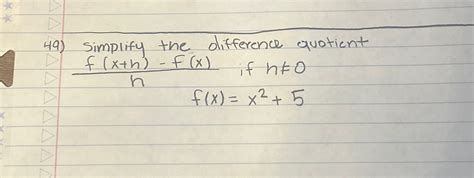 49) Simplify the difference quotient
f(x+h) - f(x) / h , if h≠0
f(x) = x² + 5